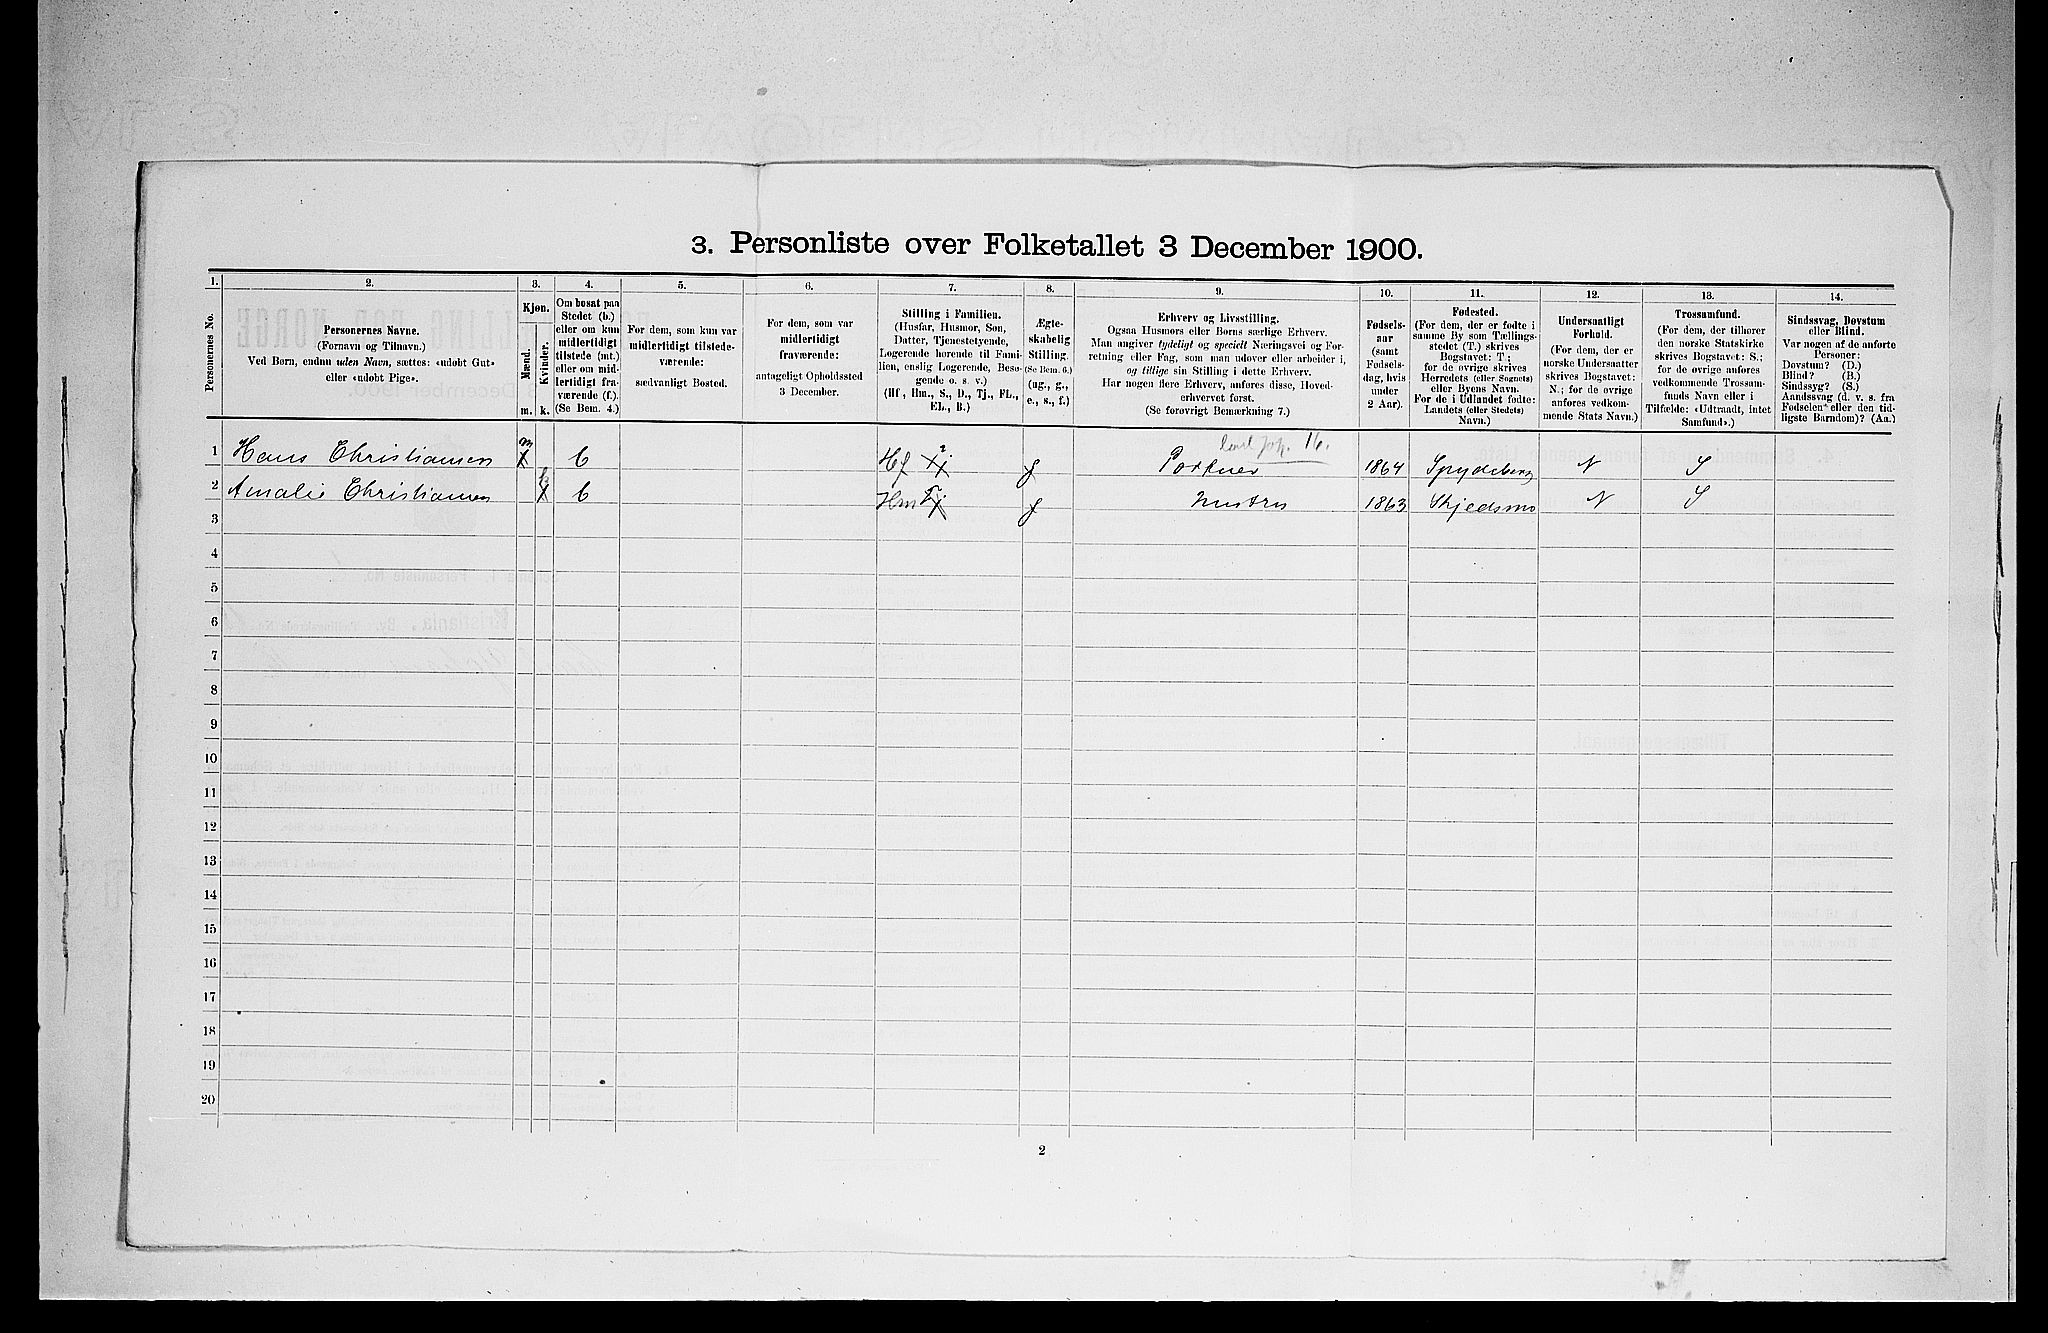 3. Personliste over Folketallet 3 December 1900.
1.
Personernes No.
2.
Personernes Navne.
(Fornavn og Tilnavn.)
Ved Børn, endnu uden Navn, sættes: «udøbt Gut»
eller «udøbt Pige».
3.
Kjøn.
Mænd.
Kvinder.
m.
k.
4.
Om bosat paa
Stedet (b.)
eller om kun
midlertidigt
tilstede (mt.)
eller om mid-
lertidigt fra-
værende (f.).
(Se Bem. 4.)
5.
For dem, som kun var
midlertidigt tilstede-
værende:
sædvanligt Bosted.
6.
For dem, som var
midlertidigt
fraværende:
antageligt Opholdssted
3 December.
7.
Stilling i Familien.
(Husfar, Husmor, Søn,
Datter, Tjenestetyende,
Logerende hørende til Fami-
lien, enslig Logerende, Besø-
gende o. s. v.)
(Hf, Hm., S., D., Tj., FL.,
EL., B.)
8.
Ægte-
skabelig
Stilling.
(Se Bem. 6.)
(ug., g.,
e., s., f.)
9.
Erhverv og Livsstilling.
Ogsaa Husmors eller Børns særlige Erhverv.
Man angiver tydeligt og specielt Næringsvei og For-
retning eller Fag, som man udøver eller arbeider i,
og tillige sin Stilling i dette Erhverv.
Har nogen flere Erhverv, anføres disse, Hoved-
erhvervet først.
(Se forøvrigt Bemærkning 7.)
10.
Fødsels-
aar
(samt
Fødsels-
dag, hvis
under
2 Aar).
11.
Fødested.
(For dem, der er fødte i
samme By som Tællings-
stedet (T.) skrives
Bogstavet: T;
for de øvrige skrives
Herredets (eller Sognets)
eller Byens Navn.
For de i Udlandet fødte:
Landets (eller Stedets)
Navn.)
12.
Undersaatligt
Forhold.
(For dem, der er
norske Undersaatter
skrives Bogstavet:
N.; for de øvrige
anføres vedkom-
mende Stats Navn.)
13.
Trossamfund.
(For dem, der tilhører
den norske Statskirke
skrives Bogstavet: S.;
for de øvrige anføres
vedkommende Trossam-
funds Navn eller i
Tilfælde: «Udtraadt, intet
Samfund».)
14.
Sindssvag, Døvstum
eller Blind.
Var nogen af de anførte
Personer:
Døvstum? (D.)
Blind? (B.)
Sindssyg? (S.)
Aandssvag (d. v. s. fra
Fødselen eller den tid-
ligste Barndom)? (Aa.)
16.
1 Hans Christiansen m b Hf g Portner 1864 Spydeberg N S
2 Amalie Christiansen k b Hm g Hustru 1863 Skjedsmo N S
3
4
5
6
7
8
9
10
11
12
13
14
15
16
17
18
19
20
2